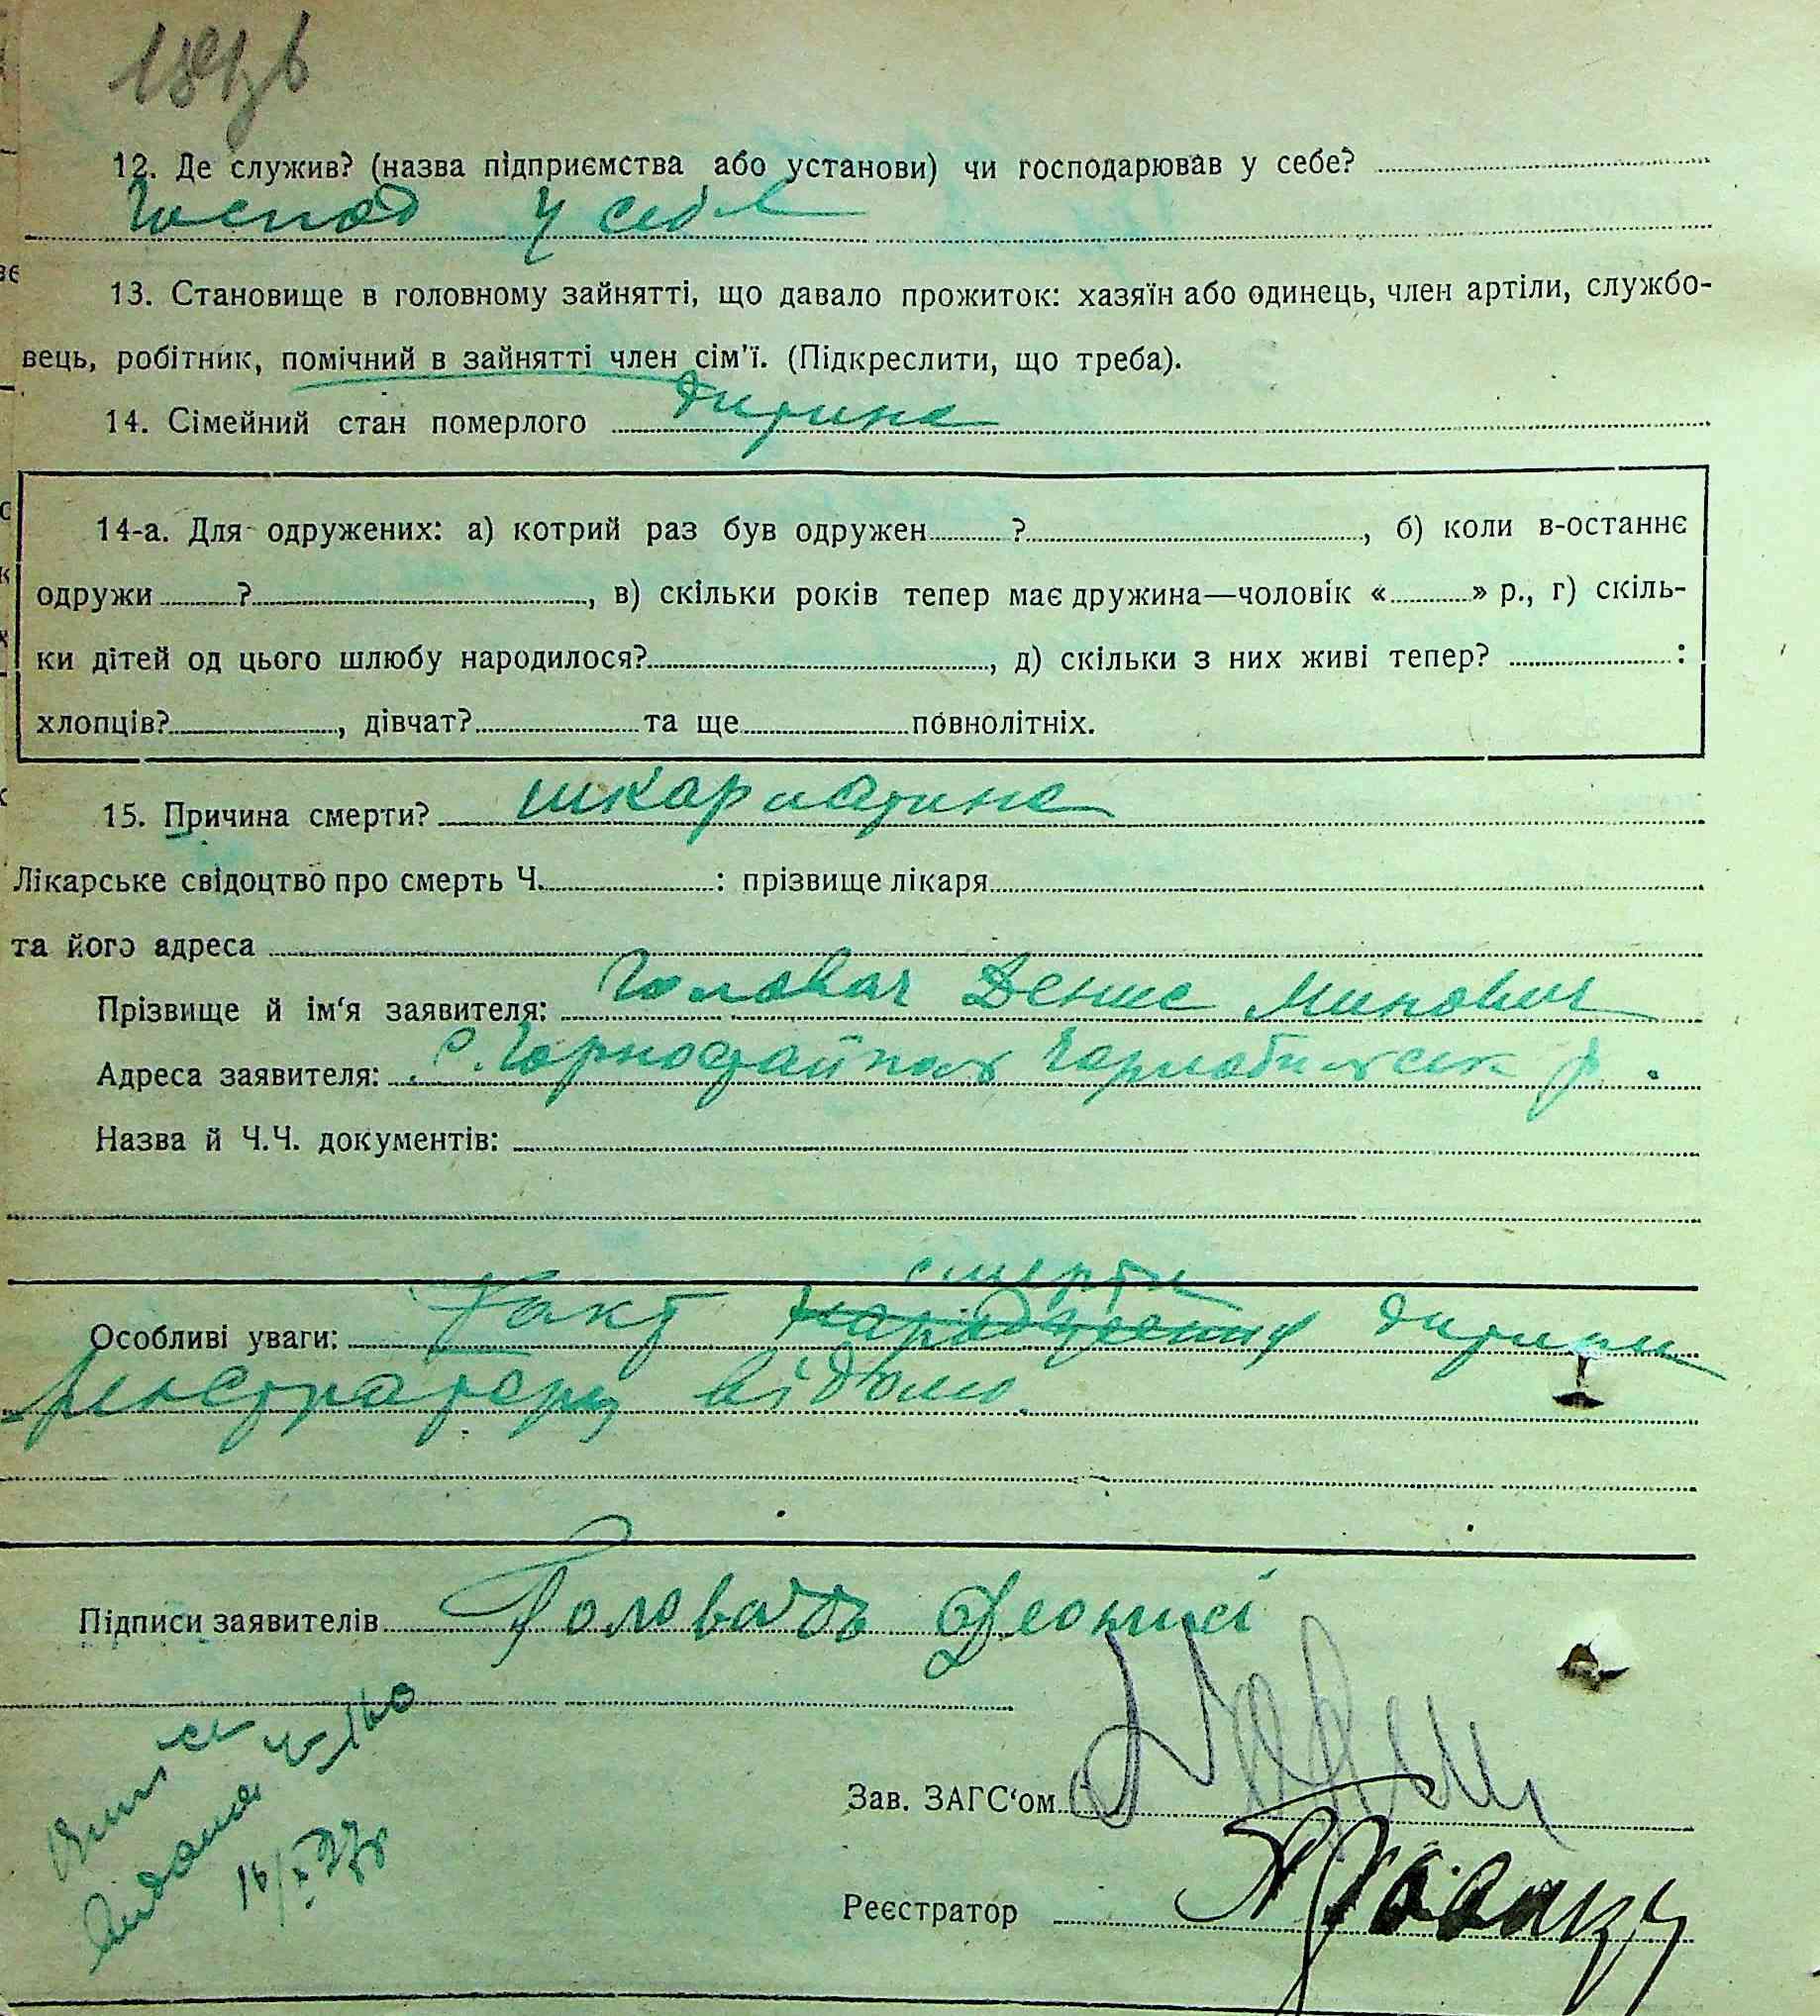 12. Де служив? (назва підприємства або установи) чи господарював у себе?
Господ у себе
13. Становище в головному зайнятті, що давало прожиток: хазяїн або одинець, член артіли, службо-
вець, робітник, помічний в зайнятті член сім'ї. (Підкреслити, що треба).
14. Сімейний стан померлого дитина
14-а. Для одружених: а) котрий раз був одружен ? , б) коли в-останнє
одружи ? , в) скільки років тепер має дружина—чоловік « » р., г) скіль-
ки дітей од цього шлюбу народилося? , д) скільки з них живі тепер? :
хлопців? , дівчат? та ще повнолітніх.
15. Причина смерти? шкарлатина
Лікарське свідоцтво про смерть Ч. : прізвище лікаря
та його адреса
Прізвище й ім'я заявителя: Головач Денис
Адреса заявителя: с.
Назва й Ч.Ч. документів:
смерти
Особливі уваги: Факт народження дитини
реєстратору відомо.
Підписи заявителів
Зав. ЗАГС'ом
Реєстратор